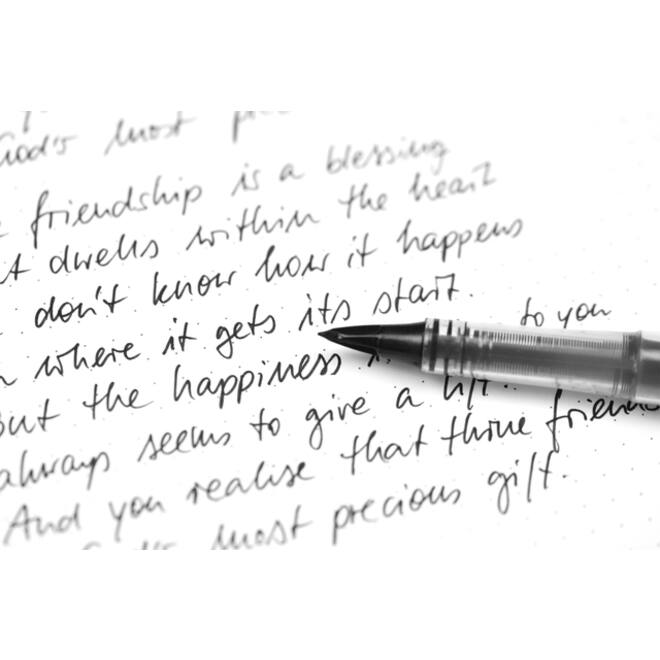 God's most
friendship is a blessing
dwells within the heart
don't know how it happens
where it gets its start.
But the happiness to you
always seems to give a lift
And you realise that thine
most precious gift.